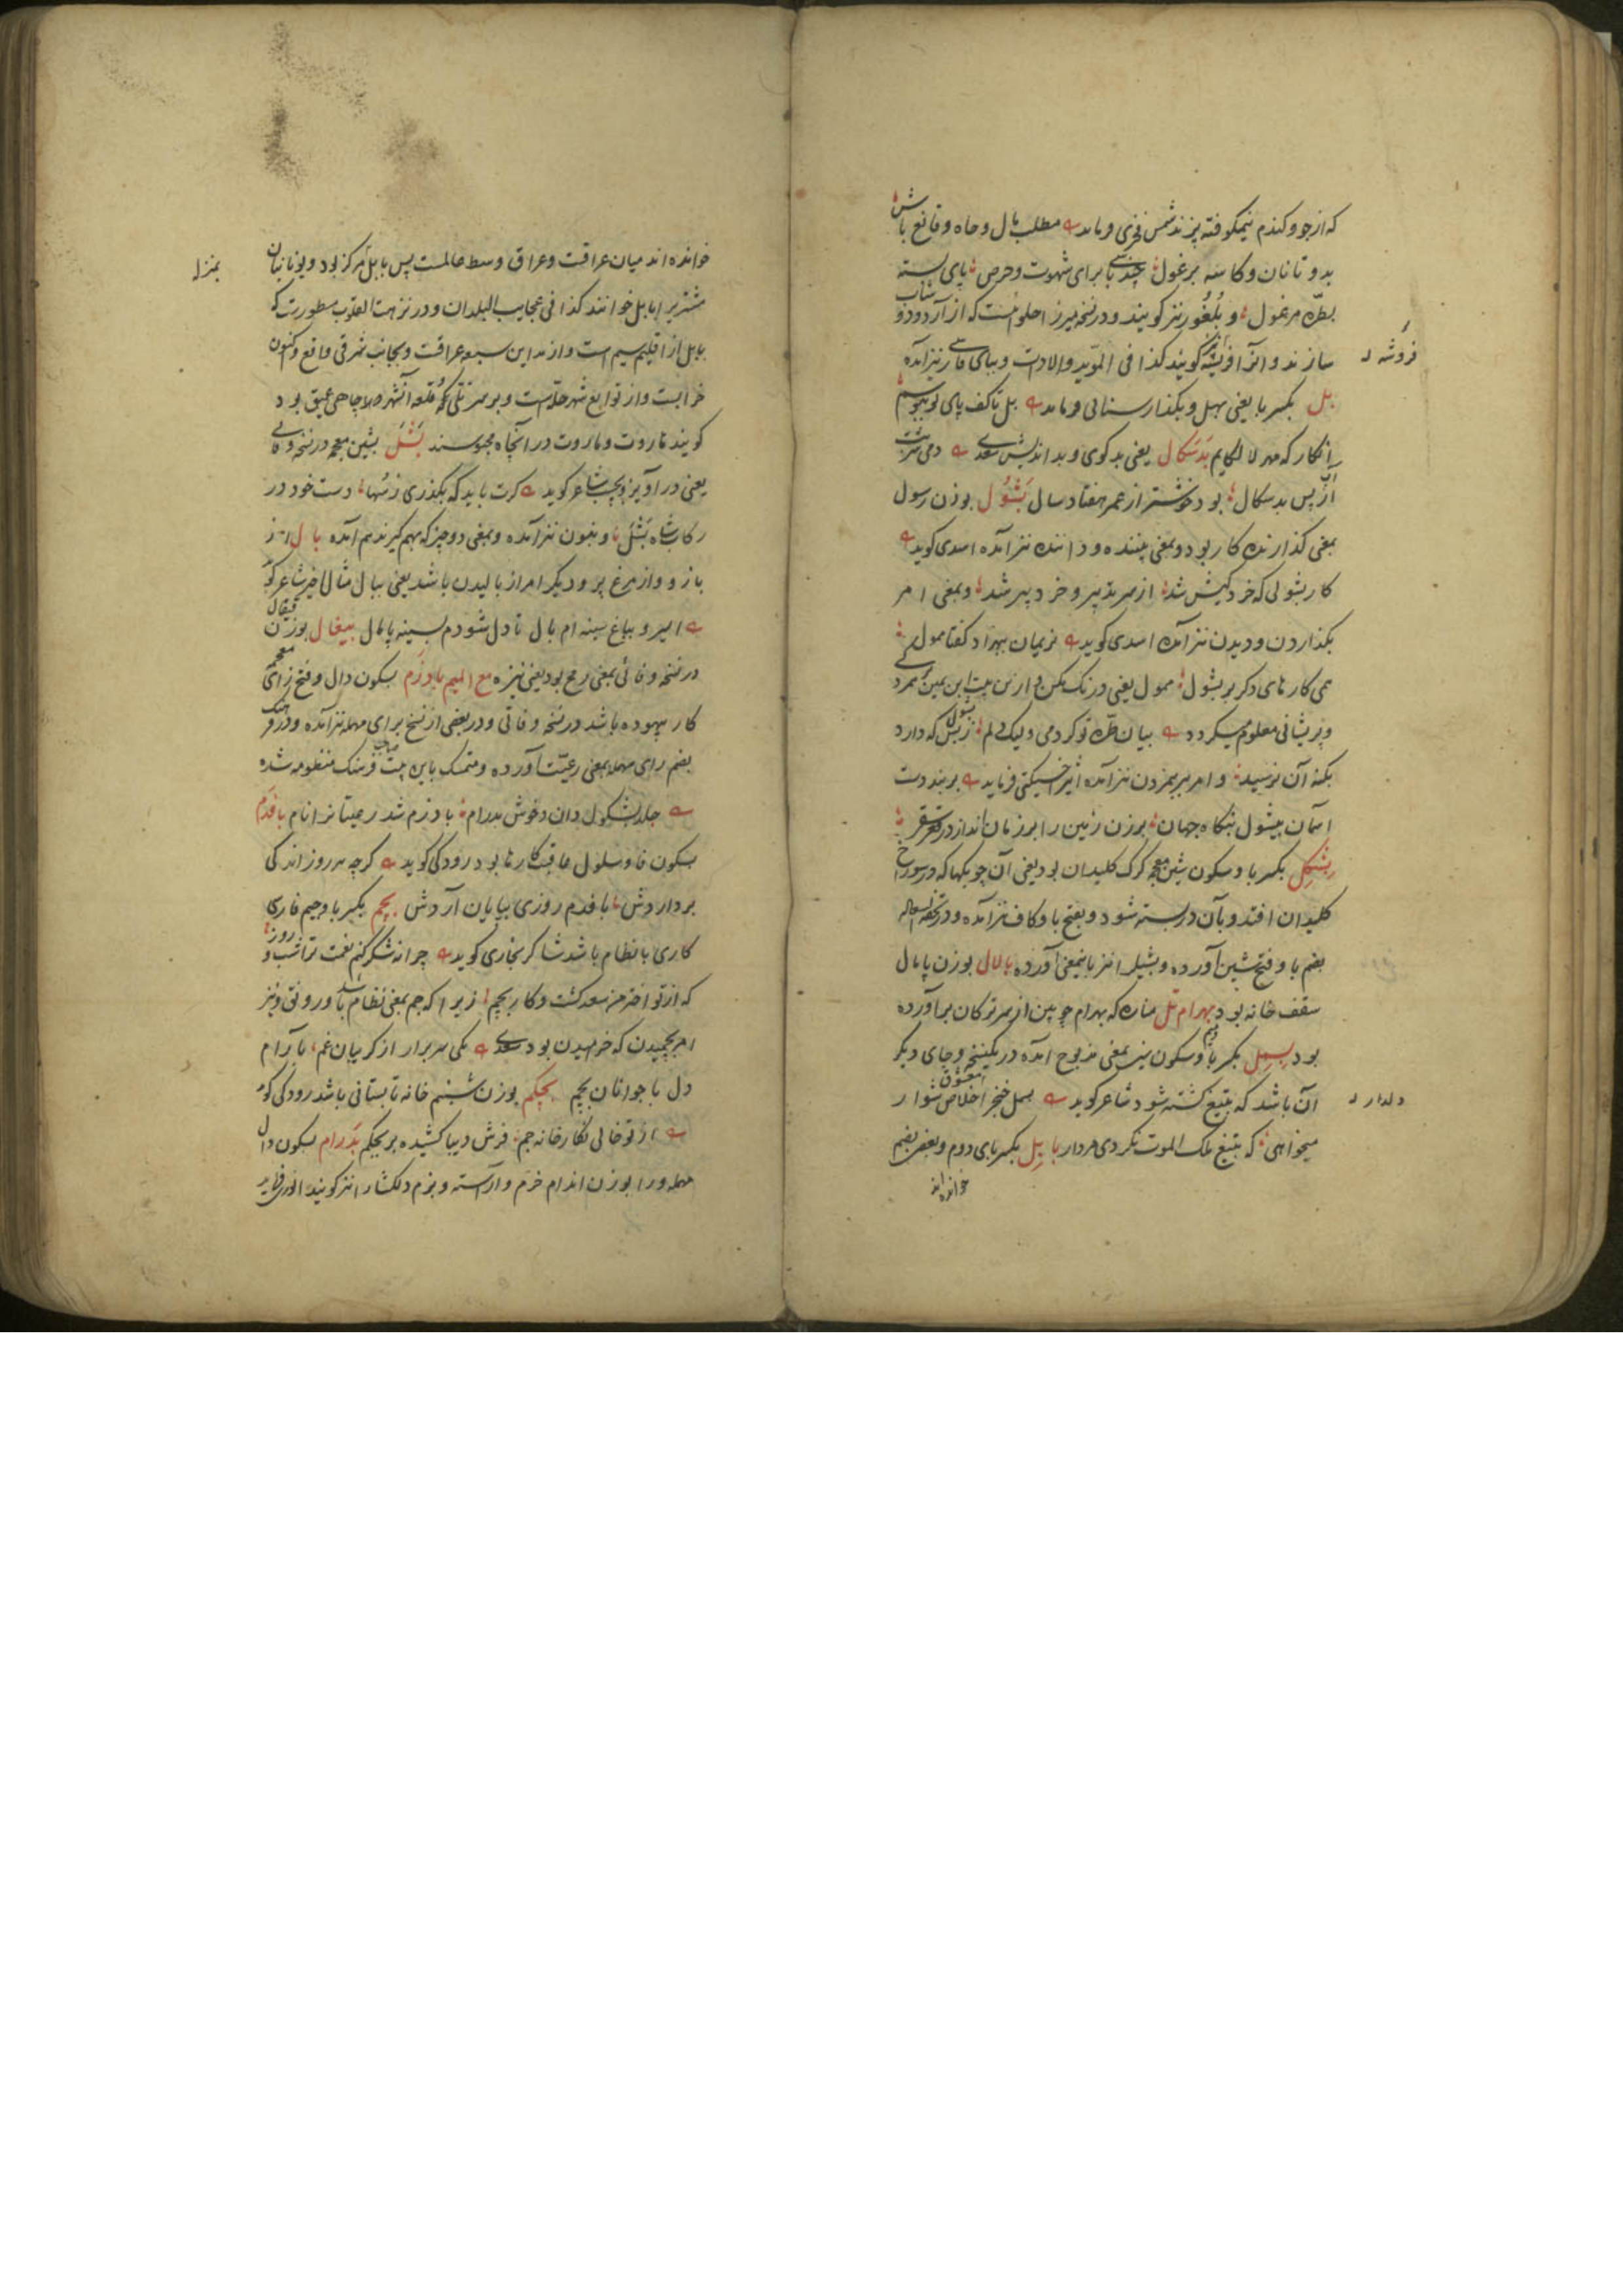 که ازجو وکندم نیمکوفته پزند شمس فخری فرماید مطلب مال وجاه وقانع باش
بدو تا نان وکاسه برغول چند باشی برای شهوت وحرص پای بسته
بطره مرغول و بلغور نیز کویند ودرنسخه میرزا حلوائیست که از آرد ودوشاب
سازند وانرا افروشه نیز کویند کذا فی المؤید والادات وببای فارسی نیز آمده
فروشه
بل بکسر با یعنی بهل وبکذار سنائی فرماید بل تاکف پای تو ببوسم
انکار که مهر لالکایم بدسکال یعنی بد کوی وبد اندیش سعدی دمی
از پس بدسکال بود خوشتر از عمر هفتاد سال بشول بوزن رسول
بمعنی کذارنده کار بود وبمعنی بیننده ودانند نیز آمده اسدی کوید
کار بشولی که خرد کیش شد از سر تدبیر و خرد پیر شد وبمعنی امر
بکذاردن ودیدن نیز آمده اسدی کوید نریمان بهزاد کفتا ممول
همی کار های دکر بر بشول ممول یعنی درنک مکن و از بیت ابن یمین
وپریشانی معلوم میکردد بیان طره تو کردمی ولیک دلم زبس بشول که دارد
بکنه آن نرسید وامر بریمزدن نیز آمده اثیر اخسیکتی فرماید بربند دست
آسمان بیشول بنکاه جهان برزن زمین را برزمان انداز در قعر سقر
بشکل بکسر با وسکون شین معجمه کرک کلیدان بود یعنی آن چوبکها که در سوراخ
کلیدان افتد وبآن در بسته شود وبفتح با وکاف نیز آمده ودر تحفه السعاده
بضم با وفتح شین آورده وبشیل را نیز باینمعنی آورده بالال بوزن پامال
سقف خانه بود بهرام تل مناره که بهرام چوبین از سر ترکان برآورده
بود بسمل بکسر با ومیم وسکون سین بمعنی مذبوح آمده در یکنسخه وجای دیکر
آن باشد که بتیغ کشته شود شاعر کوید بسمل خنجر اخلاص شو ار معشوق
دلدار
میخواهی که بتیغ ملک الموت نکردی مردار بابل بکسر بای دوم وبعضی بضم
خوانده اند
خوانده اند میان عراقست وعراق وسط عالمست پس بابل مرکز بود ویونانیان
بمنزله
مشتری را بابل خوانند کذا فی عجایب البلدان ودر نزهت القلوب مسطورست که
بابل از اقلیم سیم است واز مداین سبعه عراقست وبجانب شرقی واقع واکنون
خرابست واز توابع شهر حله است وبر سر تلی که قلعه آنشهر چاهی عمیق بود
کویند هاروت وماروت در آنچاه محبوسند بشل بشین معجمه در نسخه وفائی
یعنی در آویز وبچسب شاعر کوید کرت باید که بکذری زسها دست خود در
رکاب شاه بشل وبنون نیز آمده وبمعنی دو چیز که بهم کیرند هم آمده بال از
بازو واز مرغ پر ودیکر امر از بالیدن باشد یعنی ببال مثال اخیر شاعر کوید
اسیرو بباغ سینه ام بال تا دل شودم بسینه پامال بیغال بوزن قیفال
در نسخه وفائی بمعنی رمح بود یعنی نیزه مع المیم بادزم بسکون دال وفتح زای معجمه
کار بیهوده باشد در نسخه وفائی ودر بعضی از نسخ برای مهمله نیز آمده ودر فرهنک
بضم رای مهمله بمعنی رعیت آورده ومتمسک باین بیت صاحب فرهنک منظومه شده
جلد بشکول دان وخوش پدرام بادرم شد رعیت از انام بافدم
بسکون فا وسلول عاقبت کارها بود رودکی کوید کرچه هر روز اندکی
برداردش بافدم روزی بپایان آردش بجم بکسر با وجیم فارسی
کاری بانظام باشد شاکر بخاری کوید چرا نه شکر کنم نعمت ترا شب و روز
که از تو اختر من سعد کشت وکار بچم زیرا که چم بمعنی نظام باشد ورونق ونیز
امر بچمیدن که خرامیدن بود سعدی یکی سر برار از کریبان غم بآرام
دل با جوانان بچم بجکم بوزن شبنم خانه تابستانی باشد رودکی کوید
از تو خالی نکارخانه جم فرش دیبا کشیده بر بجکم بدرام بسکون دال
مهمله ورا بوزن اندام خرم وآراسته وبزم دلکشا را نیز کویند انوری فرماید